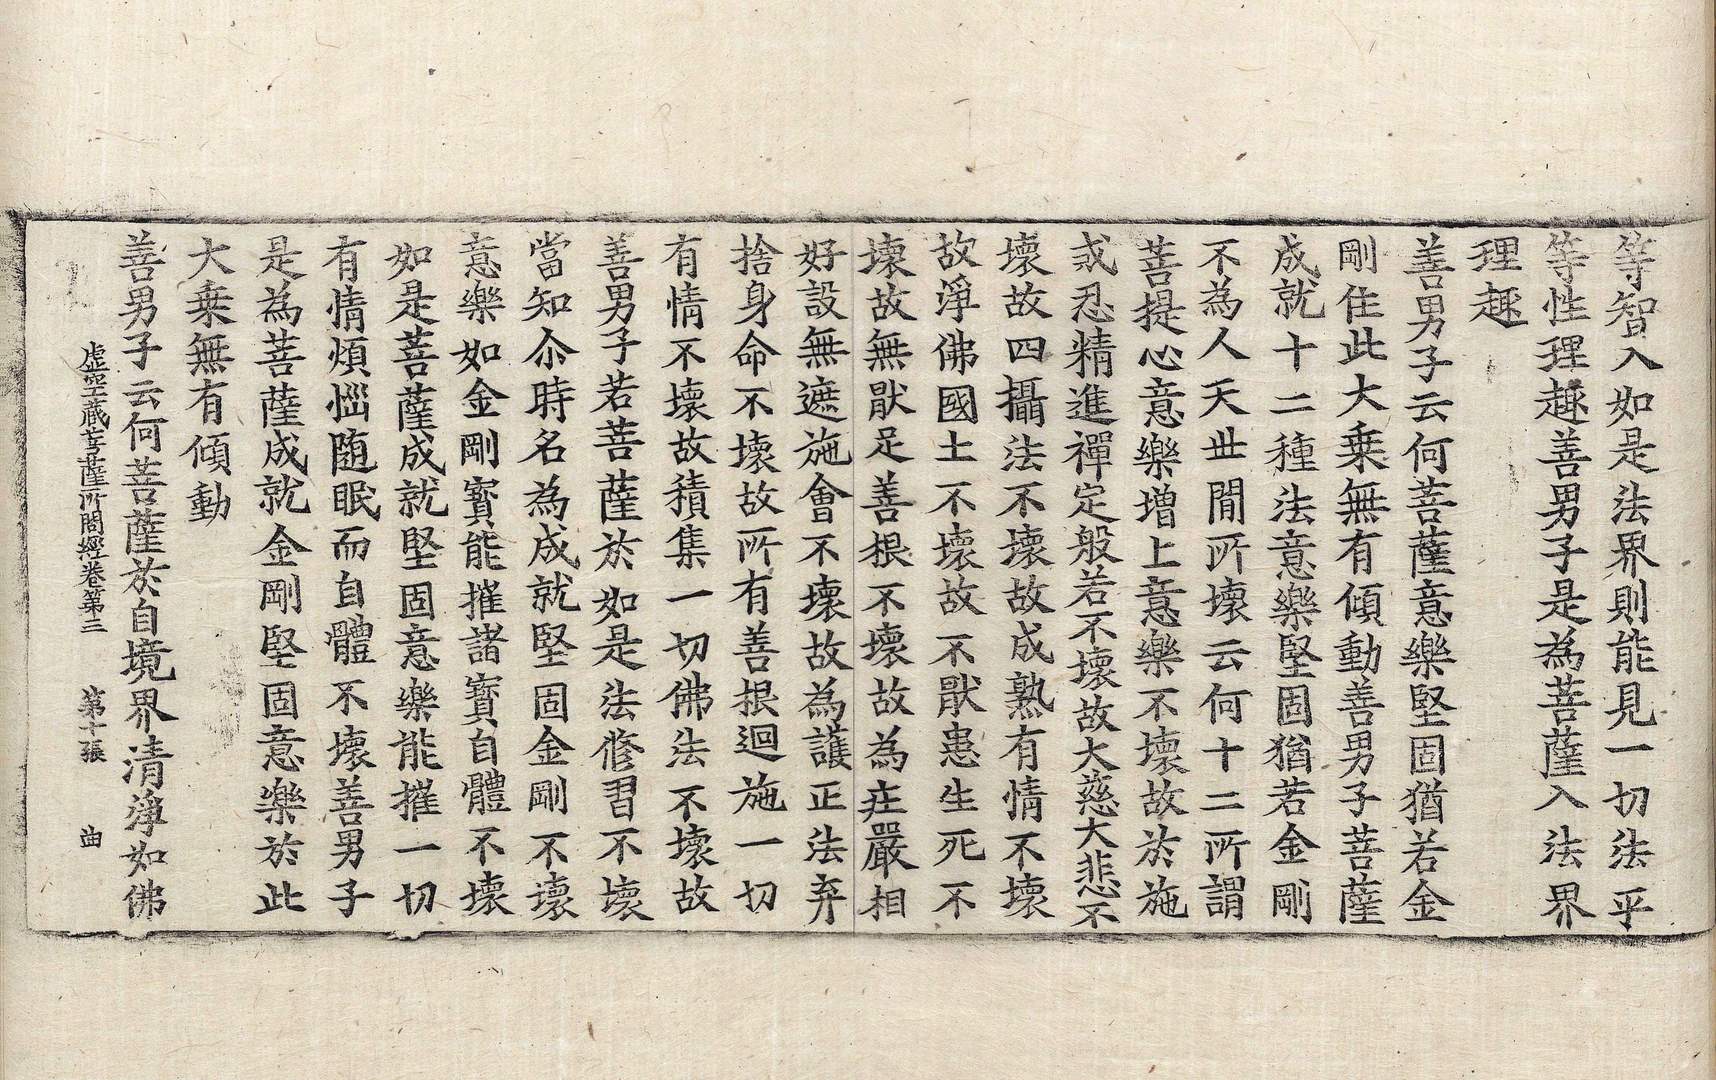 等智入如是法界則能見一切法平
等性理趣善男子是為菩薩入法界
理趣
善男子云何菩薩意樂堅固猶若金
剛住此大乘無有傾動善男子菩薩
成就十二種法意樂堅固猶若金剛
不為人天世間所壞云何十二所謂
菩提心意樂增上意樂不壞故於施
戒忍精進禪定般若不壞故大慈大悲不
壞故四攝法不壞故成熟有情不壞
故淨佛國土不壞故不猒患生死不
壞故無猒足善根不壞故為庄嚴相
好設無遮施會不壞故為護正法弃
捨身命不壞故所有善根迴施一切
有情不壞故積集一切佛法不壞故
善男子若菩薩於如是法修習不壞
當知尒時名為成就堅固金剛不壞
意樂如金剛寶能摧諸寶自體不壞
如是菩薩成就堅固意樂能摧一切
有情煩惱随眠而自體不壞善男子
是為菩薩成就金剛堅固意樂於此
大乘無有傾動
善男子云何菩薩於自境界清淨如佛
虛空蔵菩薩所問經卷第三 第十張 曲